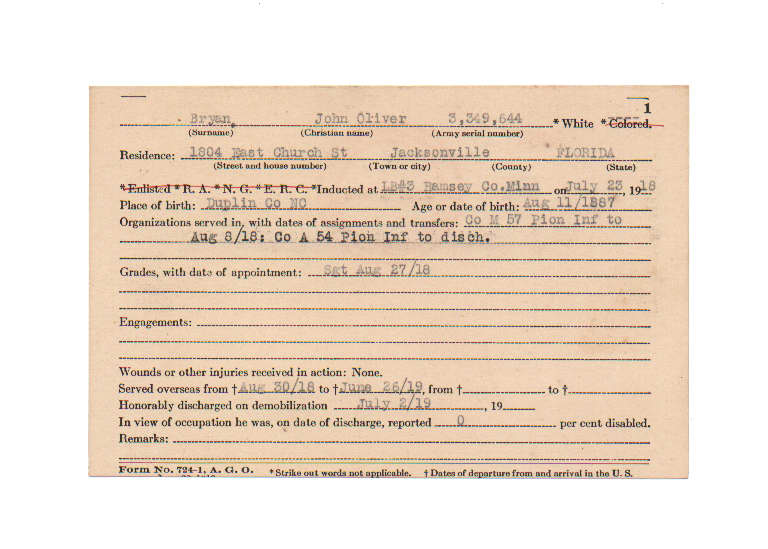 1
Bryan, John Oliver 3,349,644 * White * Colored.
(Surname) (Christian name) (Army serial number)
Residence: 1804 East Church St Jacksonville FLORIDA
(Street and house number) (Town or city) (County) (State)
*Enlisted *R. A. *N. G. *E. R. C. *Inducted at LB#3 Ramsey Co.Minn on July 23, 1918
Place of birth: Duplin Co NC Age or date of birth: Aug 11/1887
Organizations served in, with dates of assignments and transfers: Co M 57 Pion Inf to
Aug 8/18: Co A 54 Pion Inf to disch.
Grades, with date of appointment: Sgt Aug 27/18
Engagements:
Wounds or other injuries received in action: None.
Served overseas from † Aug 30/18 to † June 26/19, from † to †
Honorably discharged on demobilization July 2/19, 19
In view of occupation he was, on date of discharge, reported 0 per cent disabled.
Remarks:
Form No. 724-1, A. G. O. * Strike out words not applicable. † Dates of departure from and arrival in the U. S.